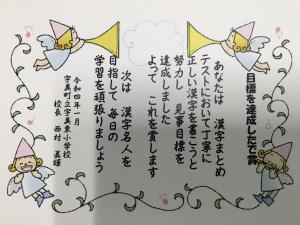 目標を達成したで賞
あなたは 漢字まとめ
テストにおいて丁寧に
正しい漢字を書こうと
努力し 見事目標を
達成しました
よって これを賞します
次は 漢字名人を
目指して 毎日の
学習を頑張りましょう
令和四年一月
宇美町立宇美東小学校
校長 西村 眞輝